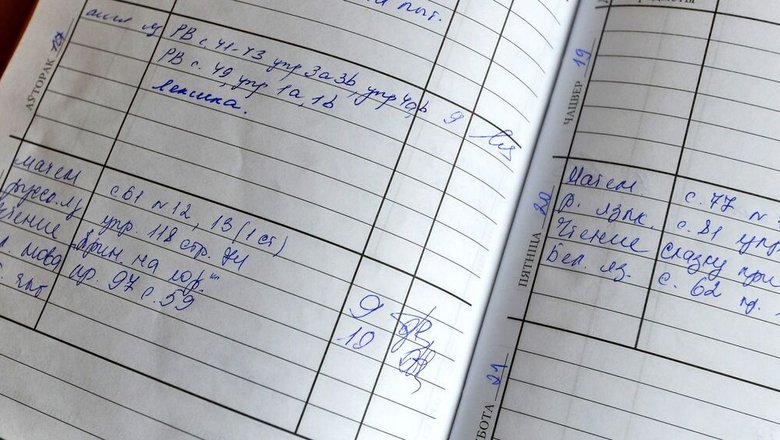 АЎТОРАК
англ яз РВ с. 41-43 упр 3а 3b, упр 4a,b
РВ с. 49, упр 1a, 1b 9
лексика.
матем с. 61 № 12, 13 (1 ст)
упр. 118 стр. 74
чтение
мова пр. 97 с. 59
9
10
ЧАЦВЕР 19
ПЯТНІЦА 20
Матем с. 77 №
р. язык. с. 81 упр
Чтение сказку при
Бел. яз. с. 62
БОТА 21